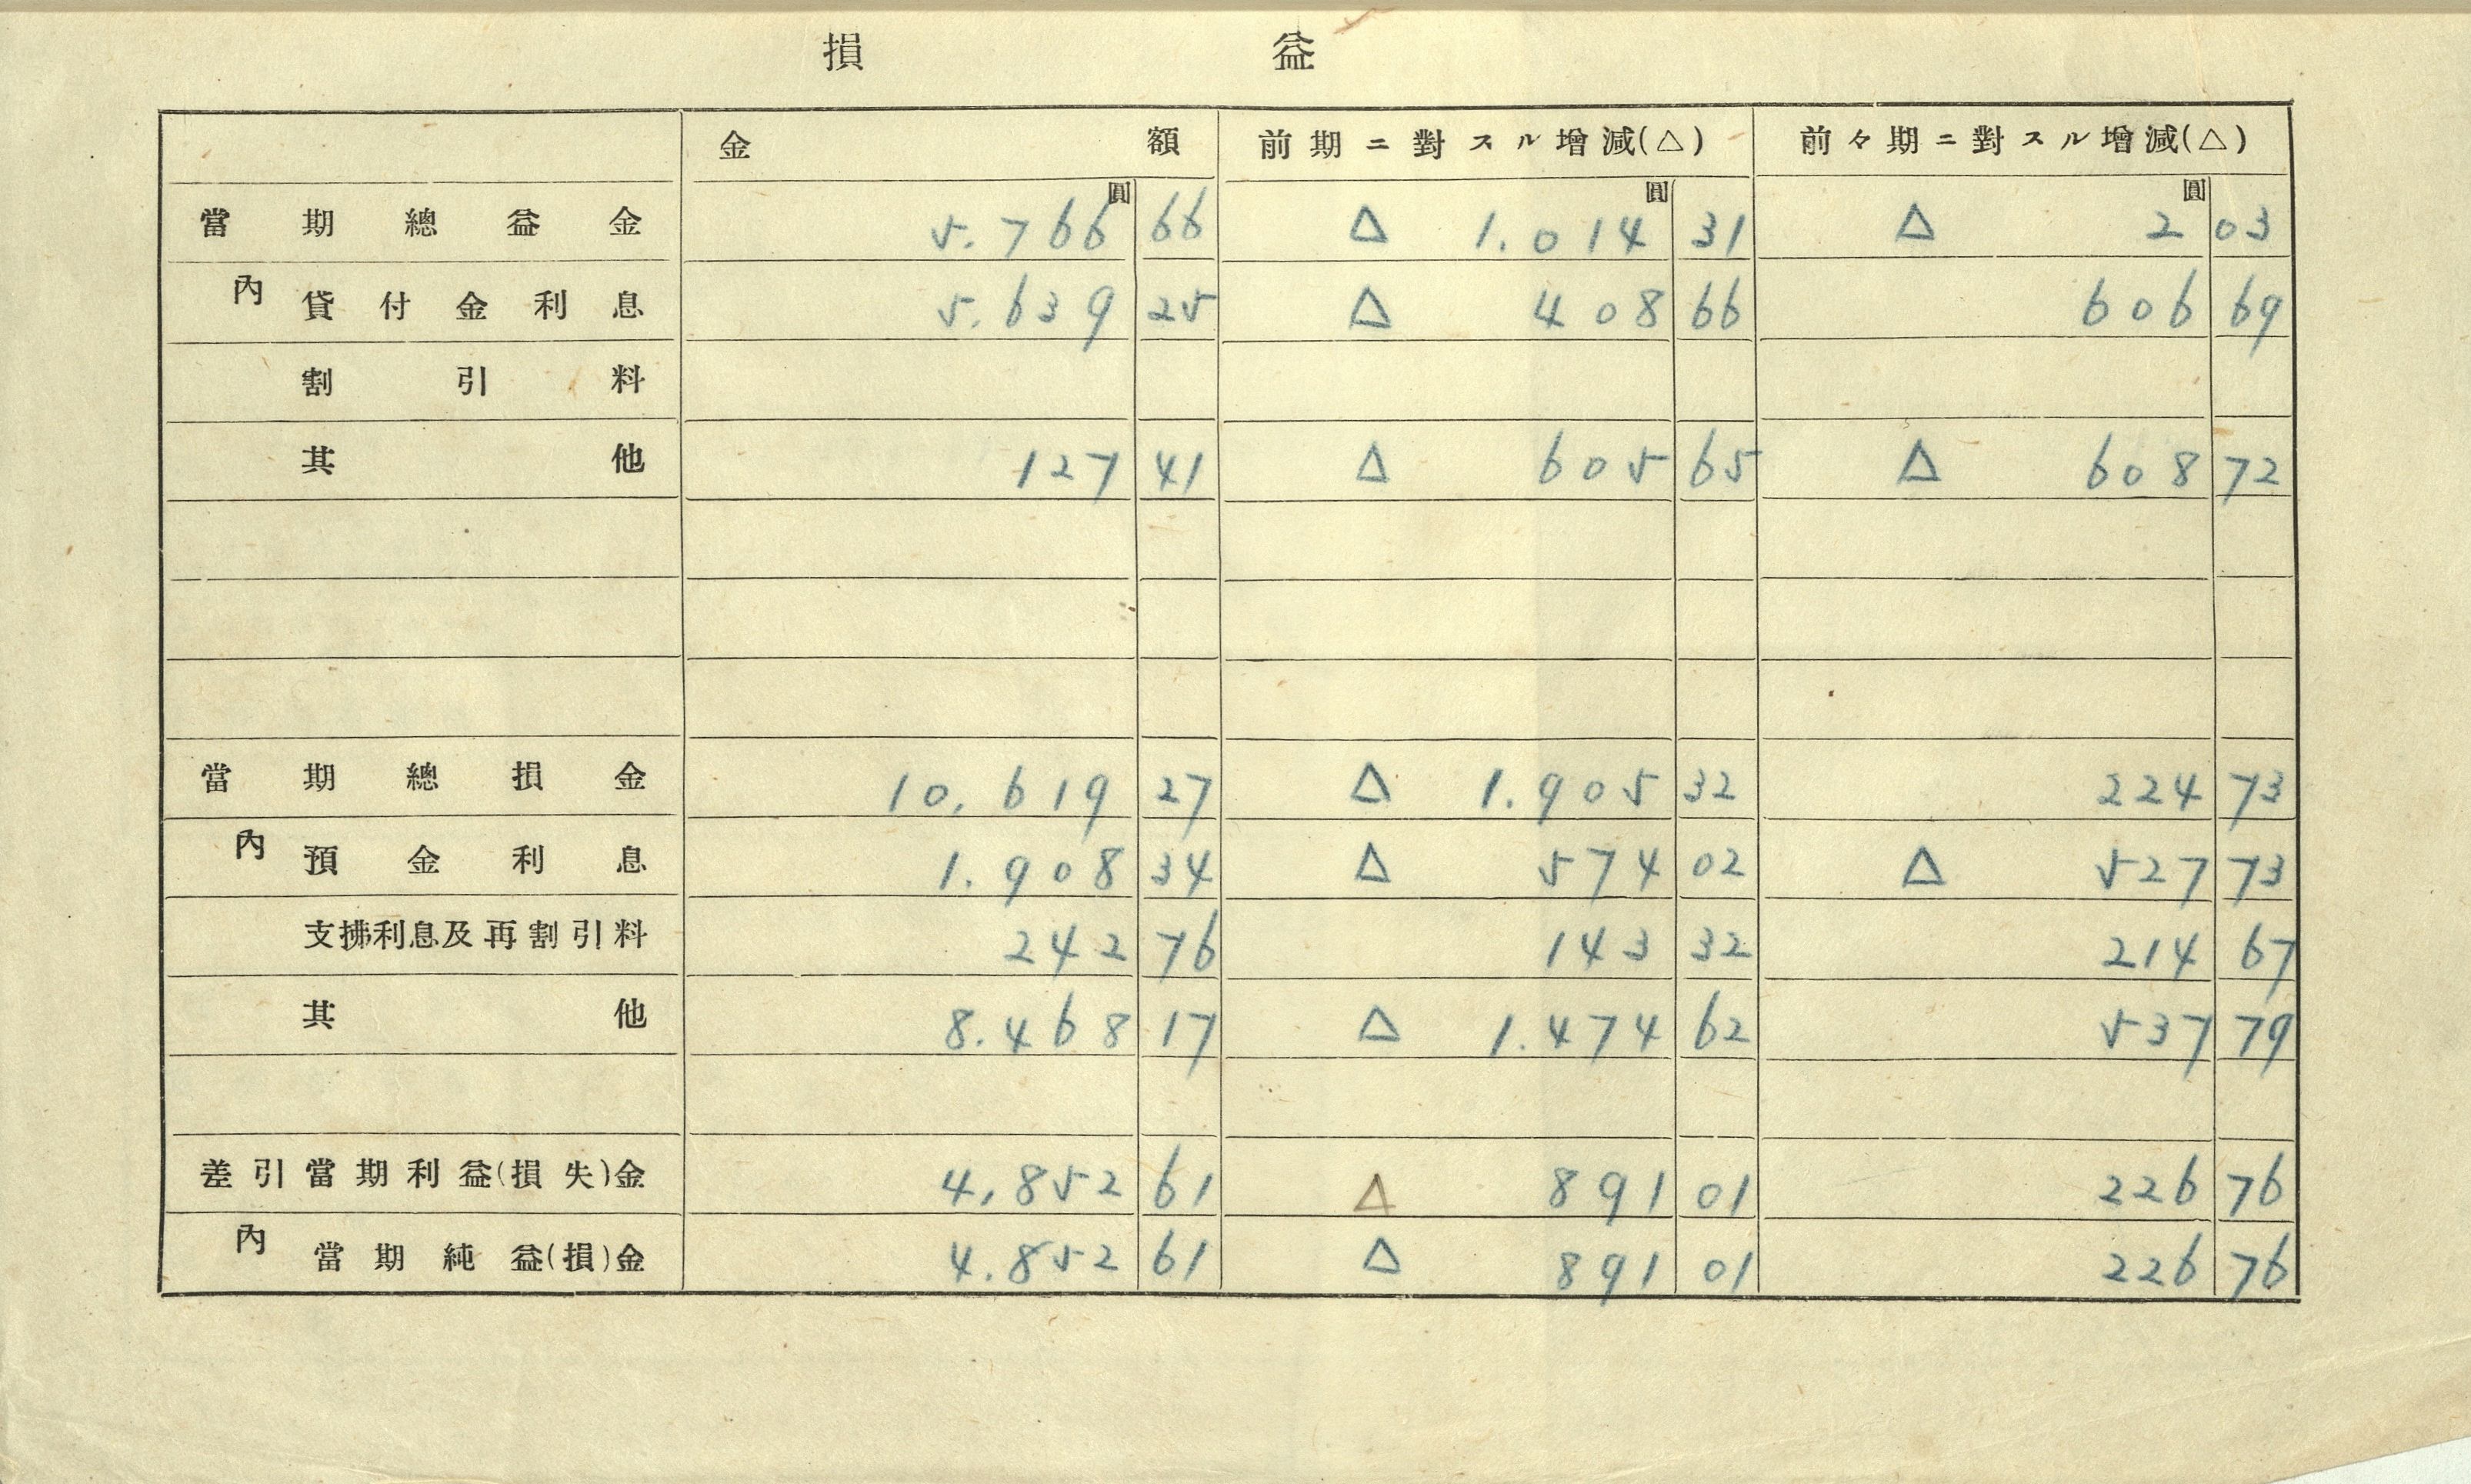 損益
金額 前期ニ對スル增減(△) 前々期ニ對スル增減(△)
圓 圓 圓
當期總益金 5.766 66 △ 1.014 31 △ 2 03
內 貸付金利息 5.639 25 △ 408 66 606 69
割引料
其他 127 41 △ 605 65 △ 608 72
當期總損金 10,619 27 △ 1.905 32 224 73
內 預金利息 1.908 34 △ 574 02 △ 527 73
支拂利息及再割引料 242 76 143 32 214 67
其他 8.468 17 △ 1.474 62 537 79
差引當期利益(損失)金 4,852 61 △ 891 01 226 76
內 當期純益(損)金 4.852 61 △ 891 01 226 76